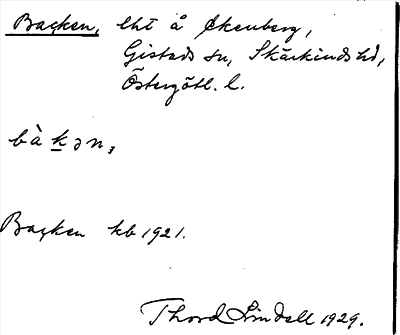 Backen, lht å Ekenberg,
Gistads sn, Skärkinds hd,
Östergötl. l.
bàkən,
Backen kb 1921.
Thord Lindell 1929.